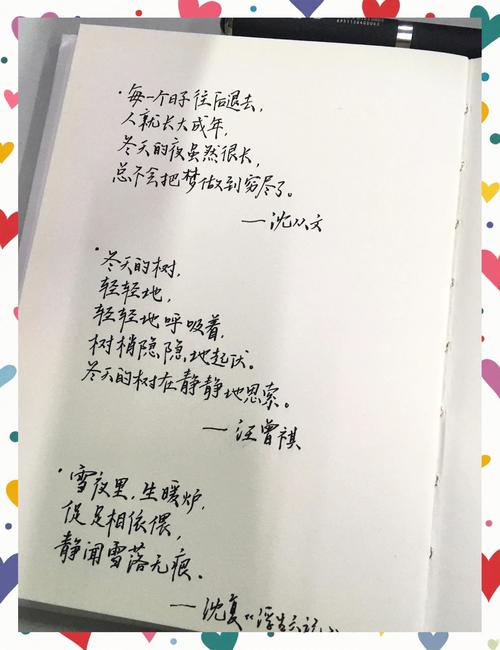 ·每一个日子往后退去,
人就长大成年,
冬天的夜虽然很长,
总不会把梦做到穷尽了。
—沈从文
·冬天的树,
轻轻地,
轻轻地呼吸着,
树梢隐隐地起伏。
冬天的树在静静地思索。
—汪曾祺
·雪夜里,生暖炉,
促足相依偎,
静闻雪落无痕.
—沈复《浮生六记》